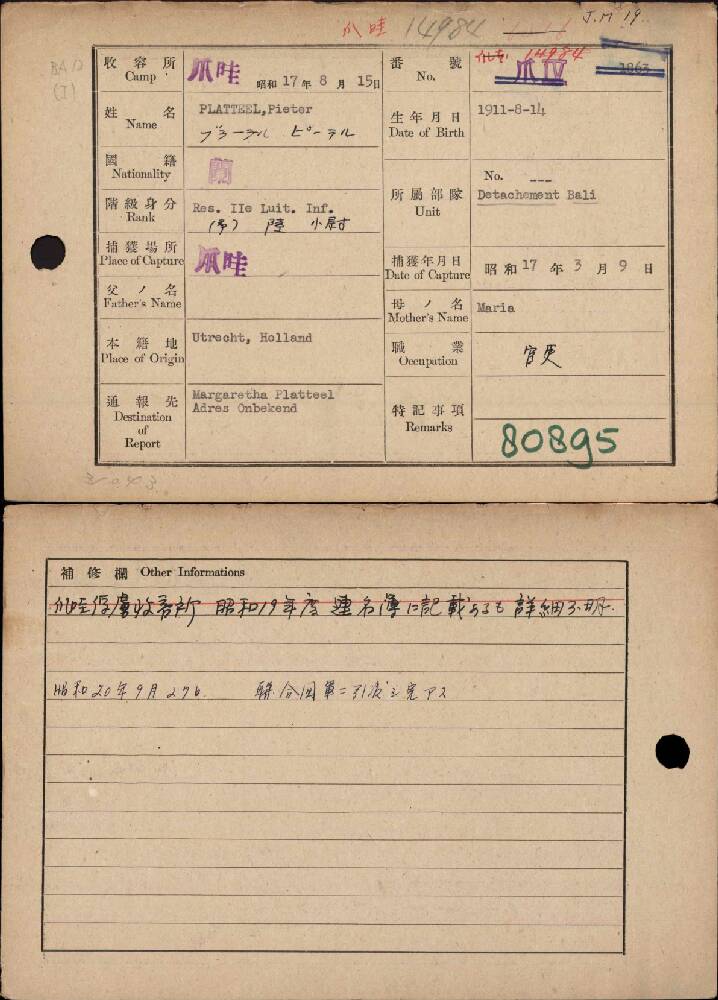 爪哇 14984
J.M 19
BAD
(I)
收容所 Camp
爪哇 昭和17年8月15日
番號 No.
爪哇 14984
爪 IV 1863
姓名 Name
PLATTEEL,Pieter
プラーテル ピーテル
生年月日 Date of Birth
1911-8-14
國籍 Nationality
蘭
階級身分 Rank
Res. IIe Luit. Inf.
陸 少尉
所屬部隊 Unit
No. ---
Detachement Bali
捕獲場所 Place of Capture
爪哇
捕獲年月日 Date of Capture
昭和17年3月9日
父ノ名 Father's Name
母ノ名 Mother's Name
Maria
本籍地 Place of Origin
Utrecht, Holland
職業 Occupation
官吏
通報先 Destination of Report
Margaretha Platteel
Adres Onbekend
特記事項 Remarks
80895
補修欄 Other Informations
爪哇俘虜收容所 昭和19年度連名簿ニ記載あるも詳細不明.
昭和20年9月27日 聯合国軍ニ引渡シ完了ス